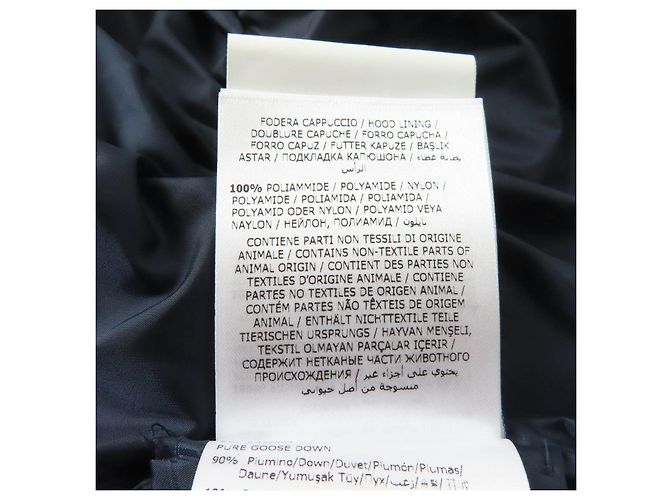 FODERA CAPPUCCIO / HOOD LINING /
DOUBLURE CAPUCHE / FORRO CAPUCHA /
FORRO CAPUZ / FUTTER KAPUZE / BAŞLIK
ASTAR / ПОДКЛАДКА КАПЮШОНА / بطانة غطاء
الرأس
100% POLIAMMIDE / POLYAMIDE / NYLON /
POLYAMIDE / POLIAMIDA / POLIAMIDA /
POLYAMID ODER NYLON / POLYAMID VEYA
NAYLON / НЕЙЛОН, ПОЛИАМИД / نايلون
CONTIENE PARTI NON TESSILI DI ORIGINE
ANIMALE / CONTAINS NON-TEXTILE PARTS OF
ANIMAL ORIGIN / CONTIENT DES PARTIES NON
TEXTILES D'ORIGINE ANIMALE / CONTIENE
PARTES NO TEXTILES DE ORIGEN ANIMAL /
CONTÉM PARTES NÃO TÊXTEIS DE ORIGEM
ANIMAL / ENTHÄLT NICHTTEXTILE TEILE
TIERISCHEN URSPRUNGS / HAYVAN MENŞELİ,
TEKSTIL OLMAYAN PARÇALAR İÇERİR /
СОДЕРЖИТ НЕТКАНЫЕ ЧАСТИ ЖИВОТНОГО
ПРОИСХОЖДЕНИЯ / يحتوي على أجزاء غير
منسوجة من أصل حيواني
PURE GOOSE DOWN
90% Piumino/Down/Duvet/Plumón/Plumas/
Daune/Yumuşak Tüy/Пух/زغب/